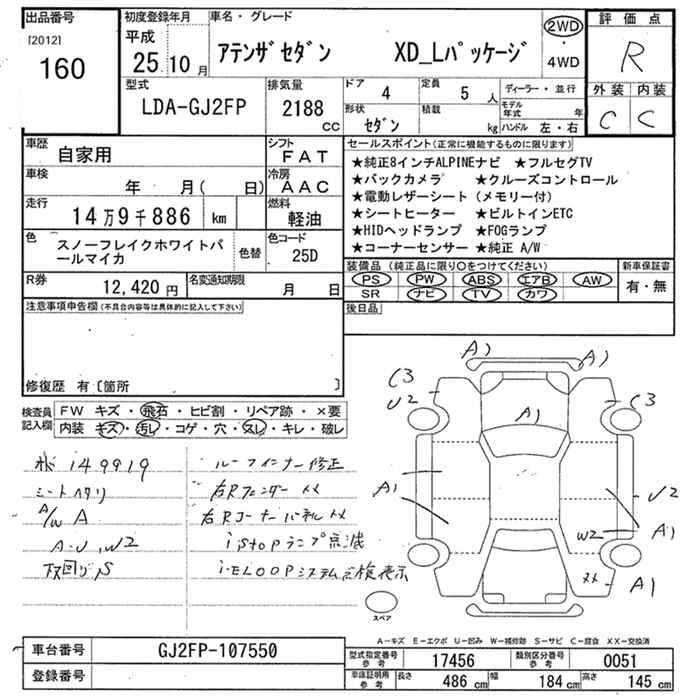 出品番号
[2012]
160
初度登録年月
平成
25年10月
車名・グレード
アテンザセダン XD_Lパッケージ
2WD
・
4WD
評価点
R
外装 内装
C C
型式
LDA-GJ2FP
排気量
2188 cc
ドア 4
定員 5人
形状 セダン
積載 kg
ディーラー・並行
モデル年式 年
ハンドル 左・右
車歴 自家用
シフト FAT
車検 年 月( 日)
冷房 AAC
走行 14万9千886 km
燃料 軽油
色 スノーフレイクホワイトパールマイカ
色替
色コード 25D
R券 12,420 円
名変通知期限 月 日
セールスポイント(正常に機能するものに限ります)
★純正8インチALPINEナビ ★フルセグTV
★バックカメラ ★クルーズコントロール
★電動レザーシート(メモリー付)
★シートヒーター ★ビルトインETC
★HIDヘッドランプ ★FOGランプ
★コーナーセンサー ★純正 A/W
装備品(純正品に限り○をつけてください)
PS PW ABS エアB AW
SR ナビ TV カワ
新車保証書
有・無
後日品
注意事項申告欄(不具合内容等は具体的に記入して下さい)
修復歴 有〔箇所 〕
検査員記入欄
FW キズ・飛石・ヒビ割・リペア跡・×要
内装 キズ・汚レ・コゲ・穴・スレ・キレ・破レ
149919
ルーフインナー修正
シートヘタリ
右Rフェンダー XX
A/W A
右Rコーナーパネル XX
A.U,W2
istopランプ点滅
下回りS
i-ELOOPシステム点検表示
A1 A1
C3
U2
A1
C3
A1
U2
W2
A1
XX
A1
スペア
A-キズ E-エクボ U-凹み W-補修跡 S-サビ C-腐食 XX-交換済
車台番号 GJ2FP-107550
登録番号
型式指定番号 参考 17456
類別区分番号 参考 0051
車庫証明用 参考
長さ 486 cm 幅 184 cm 高さ 145 cm